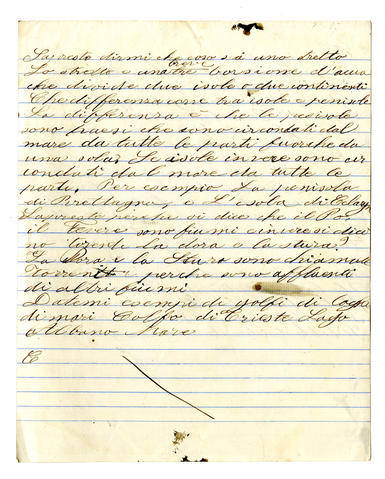 Sapreste dirmi che coso sia uno stretto
Lo stretto e una breve
che divide due isole o due continenti
Che differenza corre tra isole e penisole
La differenza è che le penisole
sono paesi che sono circondati dal
mare da tutte le parti fuorche da
una sola. Le isole invece sono cir
condati dal mare da tutte le
parti. Per esempio La penisola
di Brettagna, e L'isola di
perche si dice che il Po
il Tevere sono fiumi e invece si dica
no torente La dora e la stura?
La Dora e la Stura sono chiamate
Torrenti perche sono affluenti
di altri fiumi
Datemi esempi di golfi di
di mari Golfo di Trieste Lago
Albano Mare